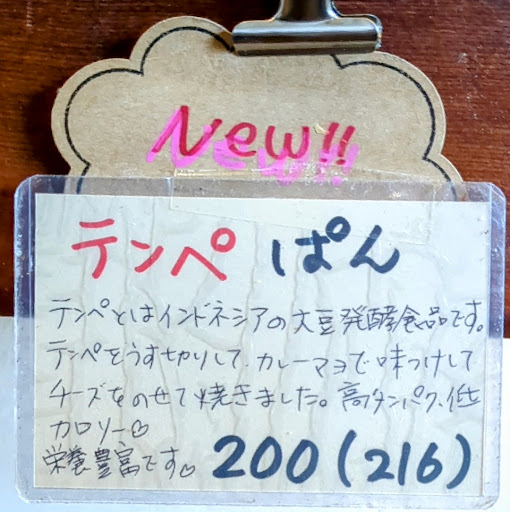 New!!
テンペ ぱん
テンペとはインドネシアの大豆発酵食品です。
テンペをうす切りして、カレーマヨで味つけして
チーズをのせて焼きました。高タンパク、低
カロリー♡
栄養豊富です♡ 200(216)